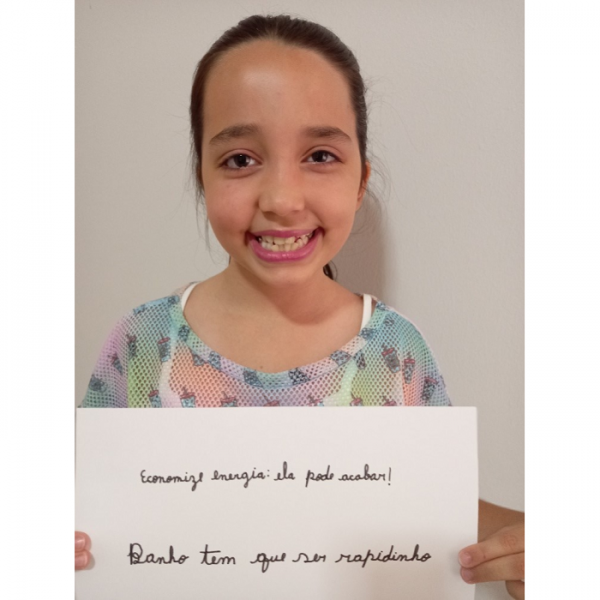 Economize energia: ela pode acabar!
Banho tem que ser rapidinho